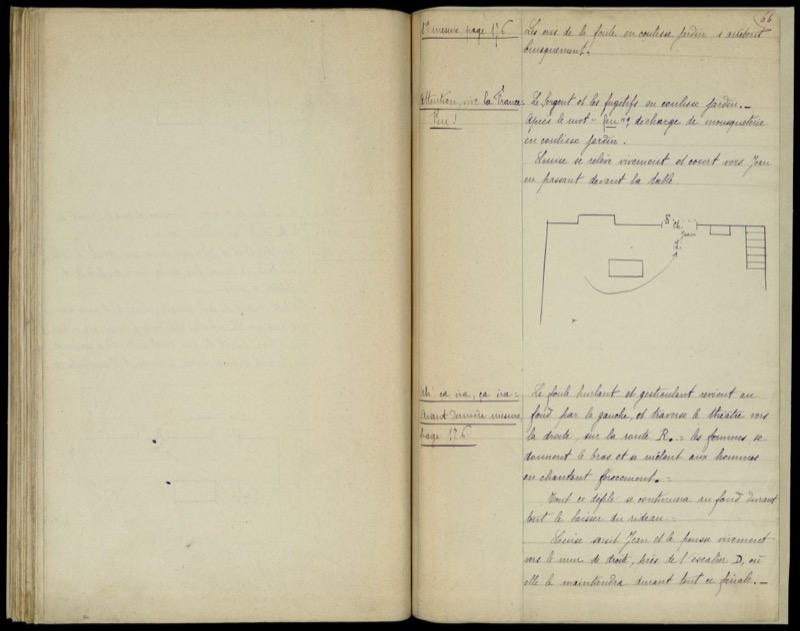 66
1re mesure page 176
Les cris de la foule en coulisse jardin s'arrêtent
brusquement.
Attention, vive la France
Feu!
Le Sergent et les fugitifs en coulisse jardin. _
Après le mot "feu", décharge de mousqueterie
en coulisse jardin.
Louise se relève vivement et court vers Jean
en passant devant la table.
S.
Ch.
Jean
L.
Ah! ça ira, ça ira =
Avant dernière mesure,
page 176
La foule hurlant et gesticulant revient au
fond par la gauche, et traverse le théâtre vers
la droite sur la route R. = les femmes se
donnent le bras et se mêlent aux hommes
en chantant férocement. =
Tout ce défilé se continuera au fond durant
tout le baisser du rideau. =
Louise saisit Jean et le pousse vivement
vers le mur de droite, près de l'escalier D, où
elle le maintiendra durant tout ce finale. _